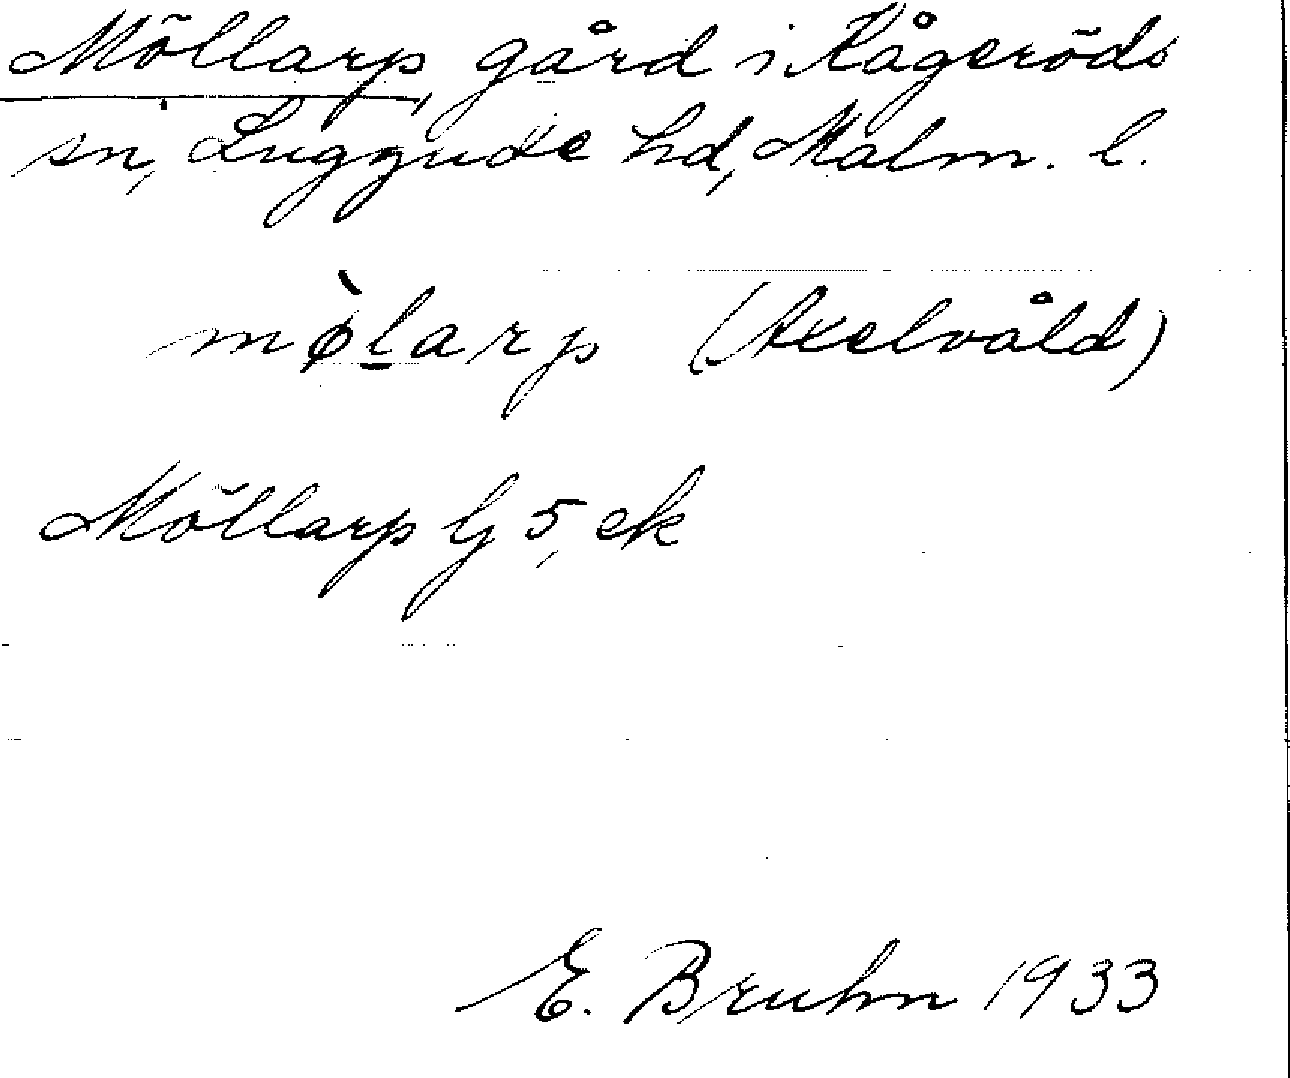 Möllarp, gård i Kågeröds
sn, Luggude hd, Malm. l.
mø̀l̲arp (Axelvåld)
Möllarp lj 5, ek
E. Bruhn 1933